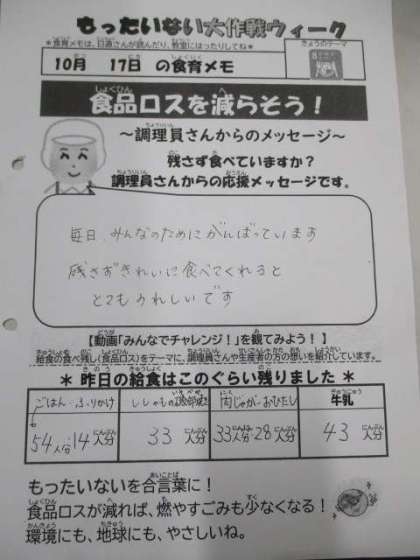 もったいない大作戦ウィーク
＊食育メモは、日直さんが読んだり、教室にはったりしてね＊
きょうのテーマ
10月 17日 の食育メモ
食品ロスを減らそう！
～調理員さんからのメッセージ～
残さず食べていますか？
調理員さんからの応援メッセージです。
毎日、みんなのためにがんばっています
残さずきれいに食べてくれると
とてもうれしいです
【動画「みんなでチャレンジ！」を観てみよう！】
給食の食べ残し(食品ロス)をテーマに、調理員さんや生産者の方の想いを紹介しています。
＊ 昨日の給食はこのぐらい残りました ＊
ごはん・ふりかけ ししゃもの磯部焼き 肉じゃが・おひたし 牛乳
54人分・14人分 33人分 33人分・28人分 43人分
もったいないを合言葉に！
食品ロスが減れば、燃やすごみも少なくなる！
環境にも、地球にも、やさしいね。